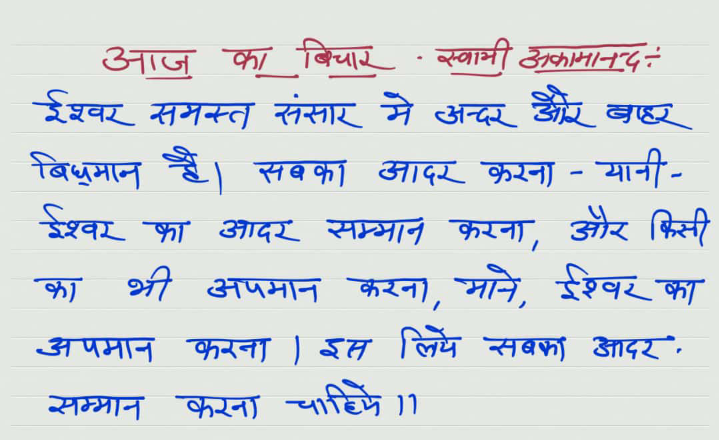 आज का बिचार . स्वामी अकामानन्द :
ईश्वर समस्त संसार मे अन्दर और बाहर
बिधमान है। सबका आदर करना - यानी -
ईश्वर का आदर सम्मान करना, और किसी
का भी अपमान करना, माने, ईश्वर का
अपमान करना । इस लिये सबका आदर .
सम्मान करना चाहिये ।।